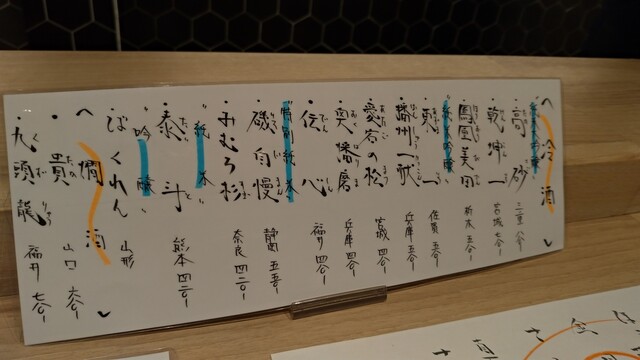 〈冷酒〉
純米大吟醸
・高砂 三重 八〇〇-
・乾坤一 宮城 七〇〇-
・鳳凰美田 栃木 五〇〇-
純米吟醸
・東一 佐賀 五〇〇-
・播州一献 兵庫 五〇〇-
・愛宕の松 宮城 四〇〇-
・奥播磨 兵庫 四〇〇-
・伝心 福井 四〇〇-
特別純米
・磯自慢 静岡 五五〇-
・みむろ杉 奈良 四二〇-
"純米"
・泰斗 熊本 四二〇-
"吟醸"
・ばくれん 山形
〈燗酒〉
・貴 山口 六〇〇-
・九頭龍 福井 七〇〇-